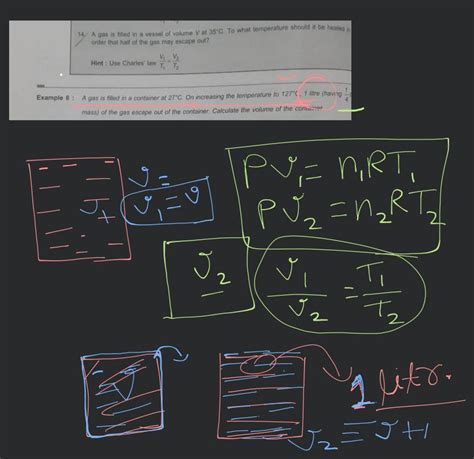 14. A gas is filled in a vessel of volume V at 35°C. To what temperature should it be heated in
order that half of the gas may escape out?
Hint : Use Charles' law V₁/T₁ = V₂/T₂
Example 8 : A gas is filled in a container at 27°C. On increasing the temperature to 127°C, 1 litre (having 1/4
mass) of the gas escape out of the container. Calculate the volume of the container
v =
v₁ = v
Pv₁ = n₁RT₁
Pv₂ = n₂RT₂
v₂
v₁/v₂ = T₁/T₂
V
1 litr.
v₂ = v+1